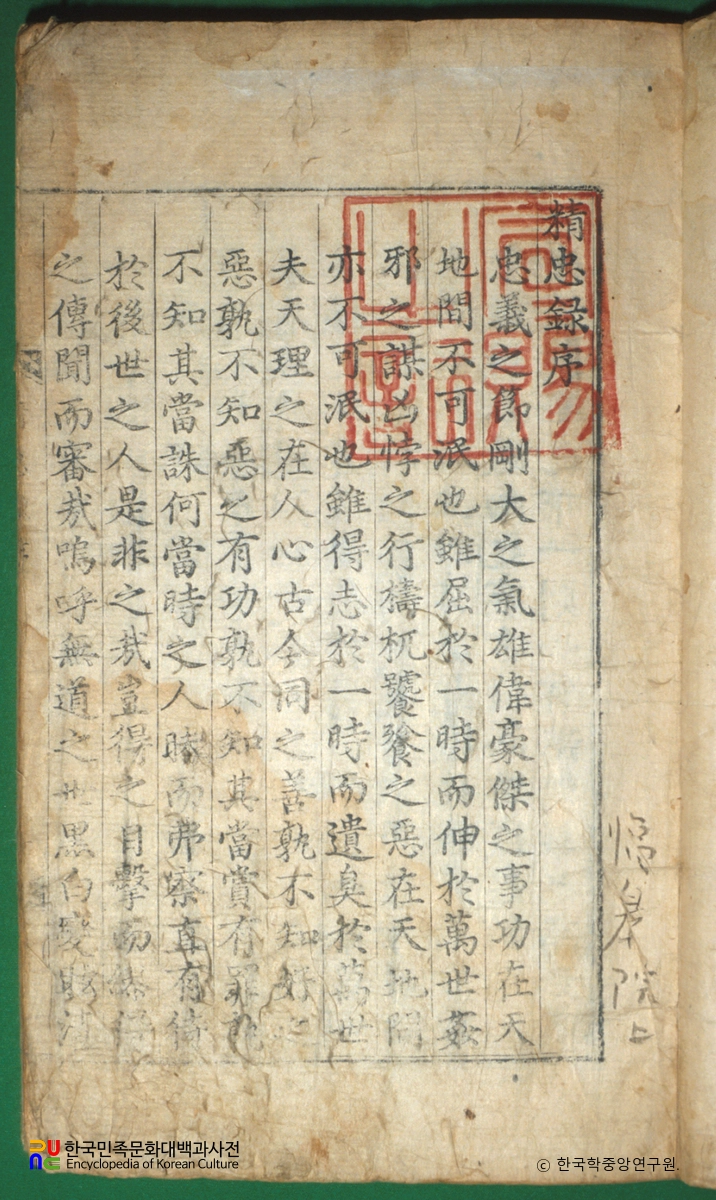 精忠録序
忠義之節剛大之氣雄偉豪傑之事功在天
地間不可泯也雖屈於一時而伸於萬世姦
邪之謀凶悖之行檮杌饕餮之惡在天地間
亦不可泯也雖得志於一時而遺臭於萬世
夫天理之在人心古今同之善孰不知好之
惡孰不知惡之有功孰不知其當賞有罪孰
不知其當誅何當時之人瞭而弗察直有待
於後世之人是非之哉豈得之目擊而
之傳聞而審哉嗚呼無道之世黑白變
臨皐院上
한국민족문화대백과사전
Encyclopedia of Korean Culture
© 한국학중앙연구원